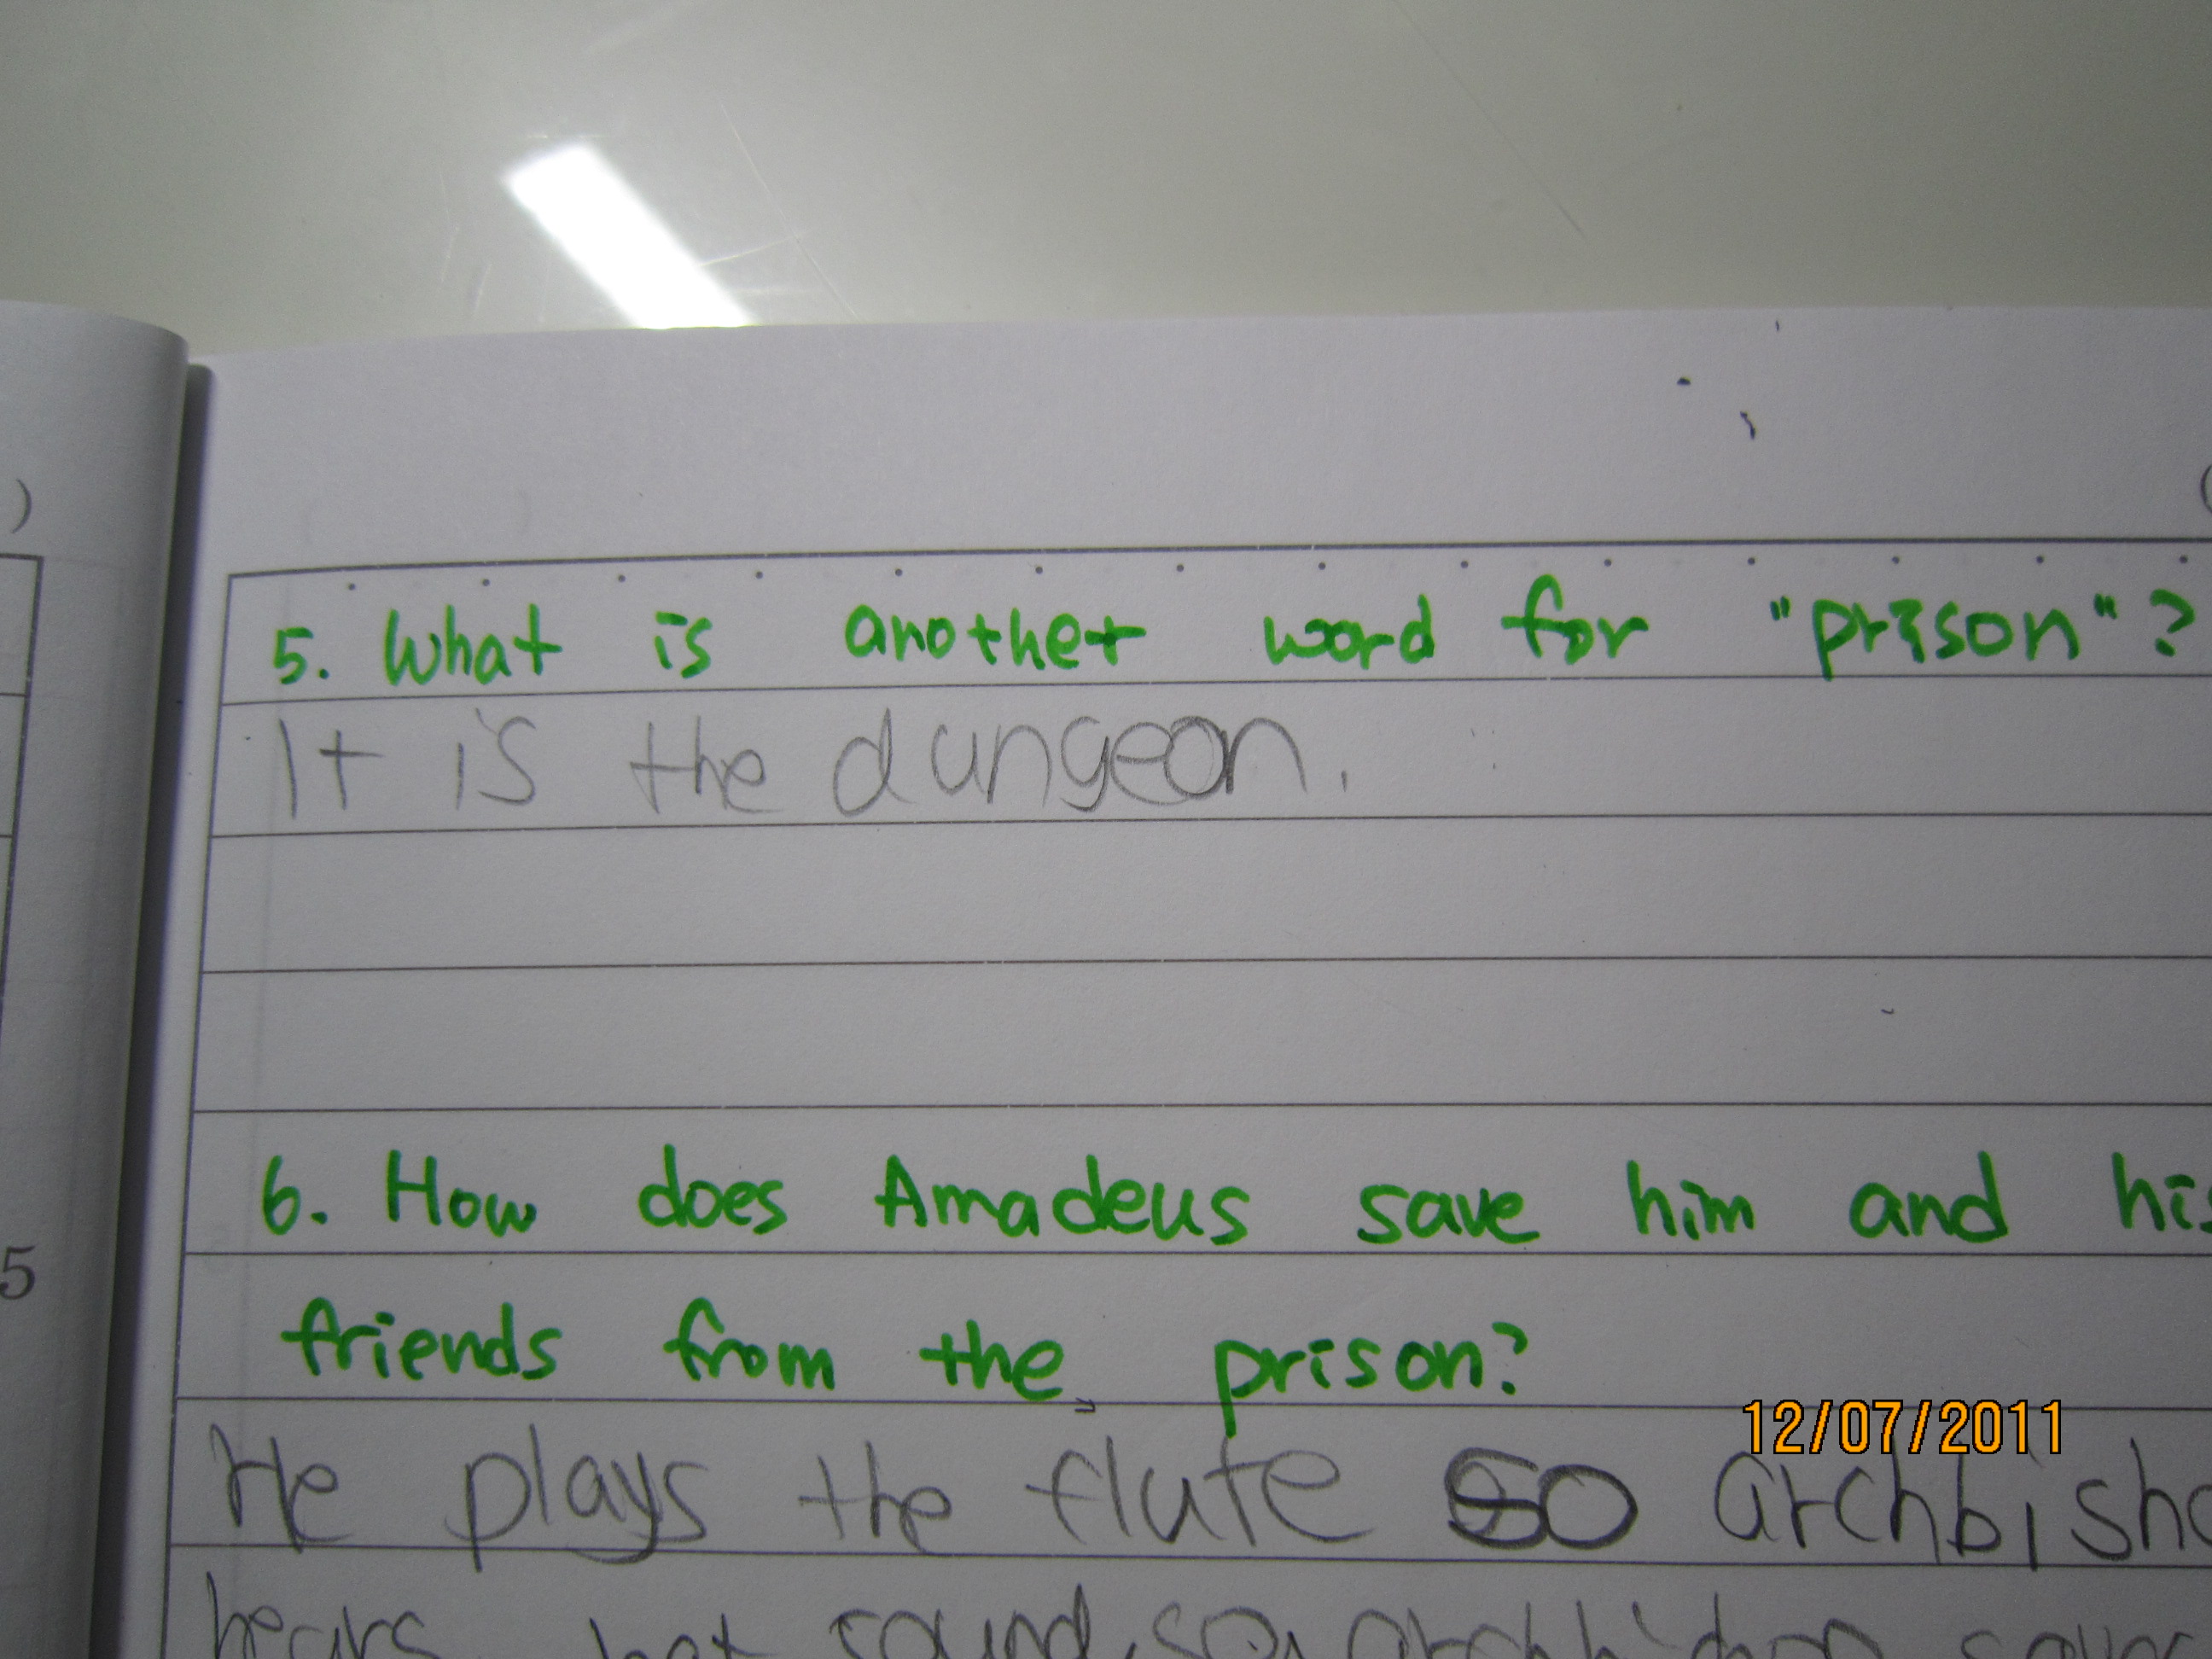 )
(
5. What is another word for "prison"?
It is the dungeon.
6. How does Amadeus save him and his
friends from the prison?
5
12/07/2011
He plays the flute so archbisho
hears sound, so archbishop saves